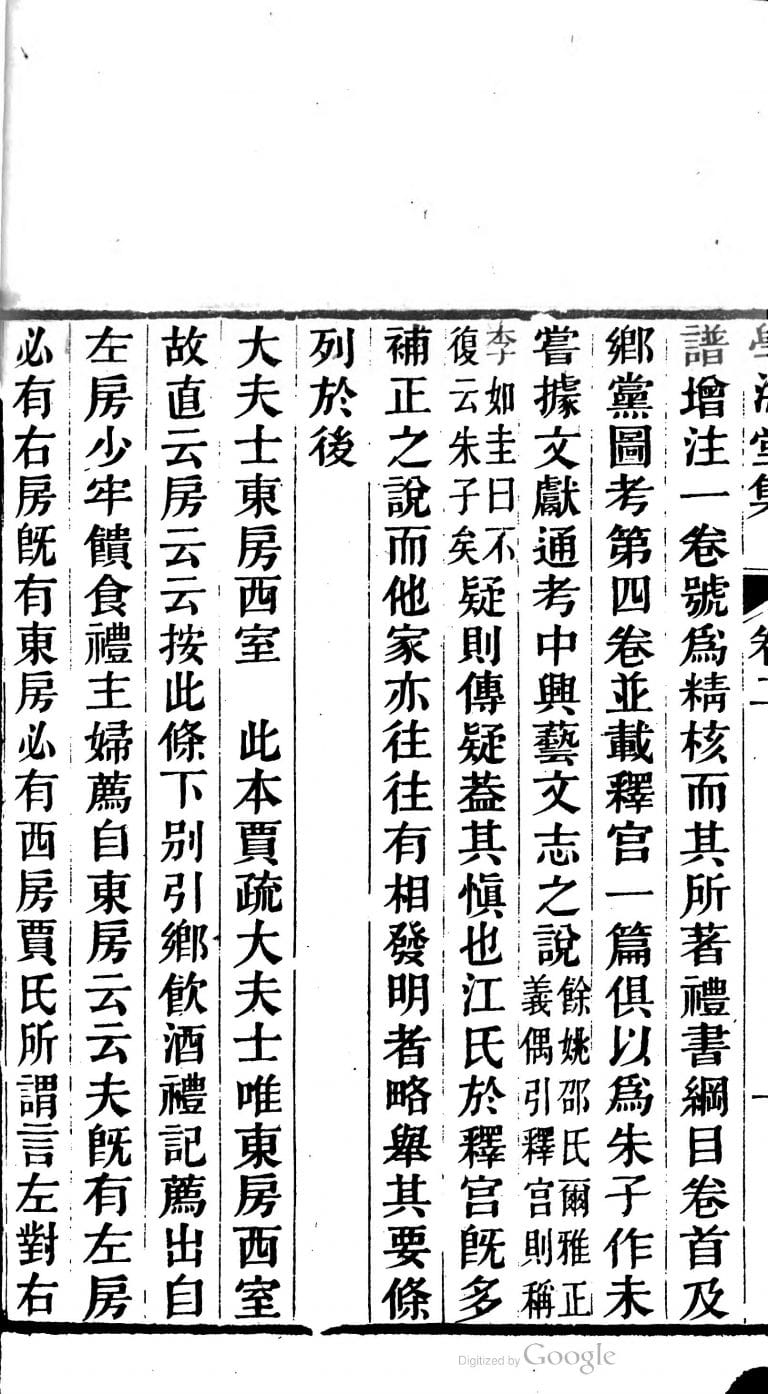 學海堂集 卷二
譜增注一卷號爲精核而其所著禮書綱目卷首及
鄉黨圖考第四卷並載釋宮一篇俱以爲朱子作未
嘗據文獻通考中興藝文志之說餘姚邵氏爾雅正
義偶引釋宮則稱
李如圭曰不
復云朱子矣疑則傳疑葢其愼也江氏於釋宮旣多
補正之說而他家亦往往有相發明者略舉其要條
列於後
大夫士東房西室 此本賈疏大夫士唯東房西室
故直云房云云按此條下別引鄉飮酒禮記薦出自
左房少牢饋食禮主婦薦自東房云云夫旣有左房
必有右房旣有東房必有西房賈氏所謂言左對右
Digitized by Google